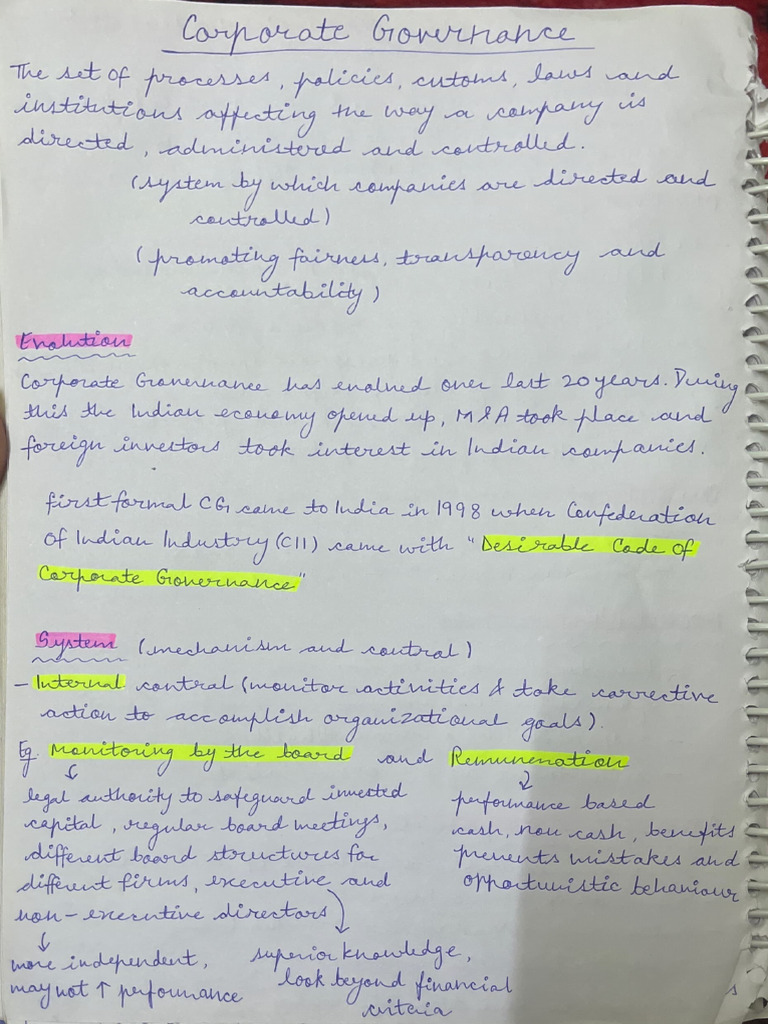 Corporate Governance
The set of processes, policies, customs, laws and
institutions affecting the way a company is
directed, administered and controlled.
(system by which companies are directed and
controlled)
(promoting fairness, transparency and
accountability)
Evolution
Corporate Governance has evolved over last 20 years. During
this the Indian economy opened up, M&A took place and
foreign investors took interest in Indian companies.
first formal CG came to India in 1998 when Confederation
of Indian Industry (CII) came with "Desirable Code of
Corporate Governance"
System (mechanism and control)
- Internal control (monitor activities & take corrective
action to accomplish organizational goals).
Eg. Monitoring by the board and Remuneration
↓ ↓
legal authority to safeguard invested
capital, regular board meetings,
different board structures for
different firms, executive and
non-executive directors
performance based
cash, non cash, benefits
prevents mistakes and
opportunistic behaviour
↓
more independent,
may not ↑ performance
superior knowledge,
look beyond financial
criteria
s